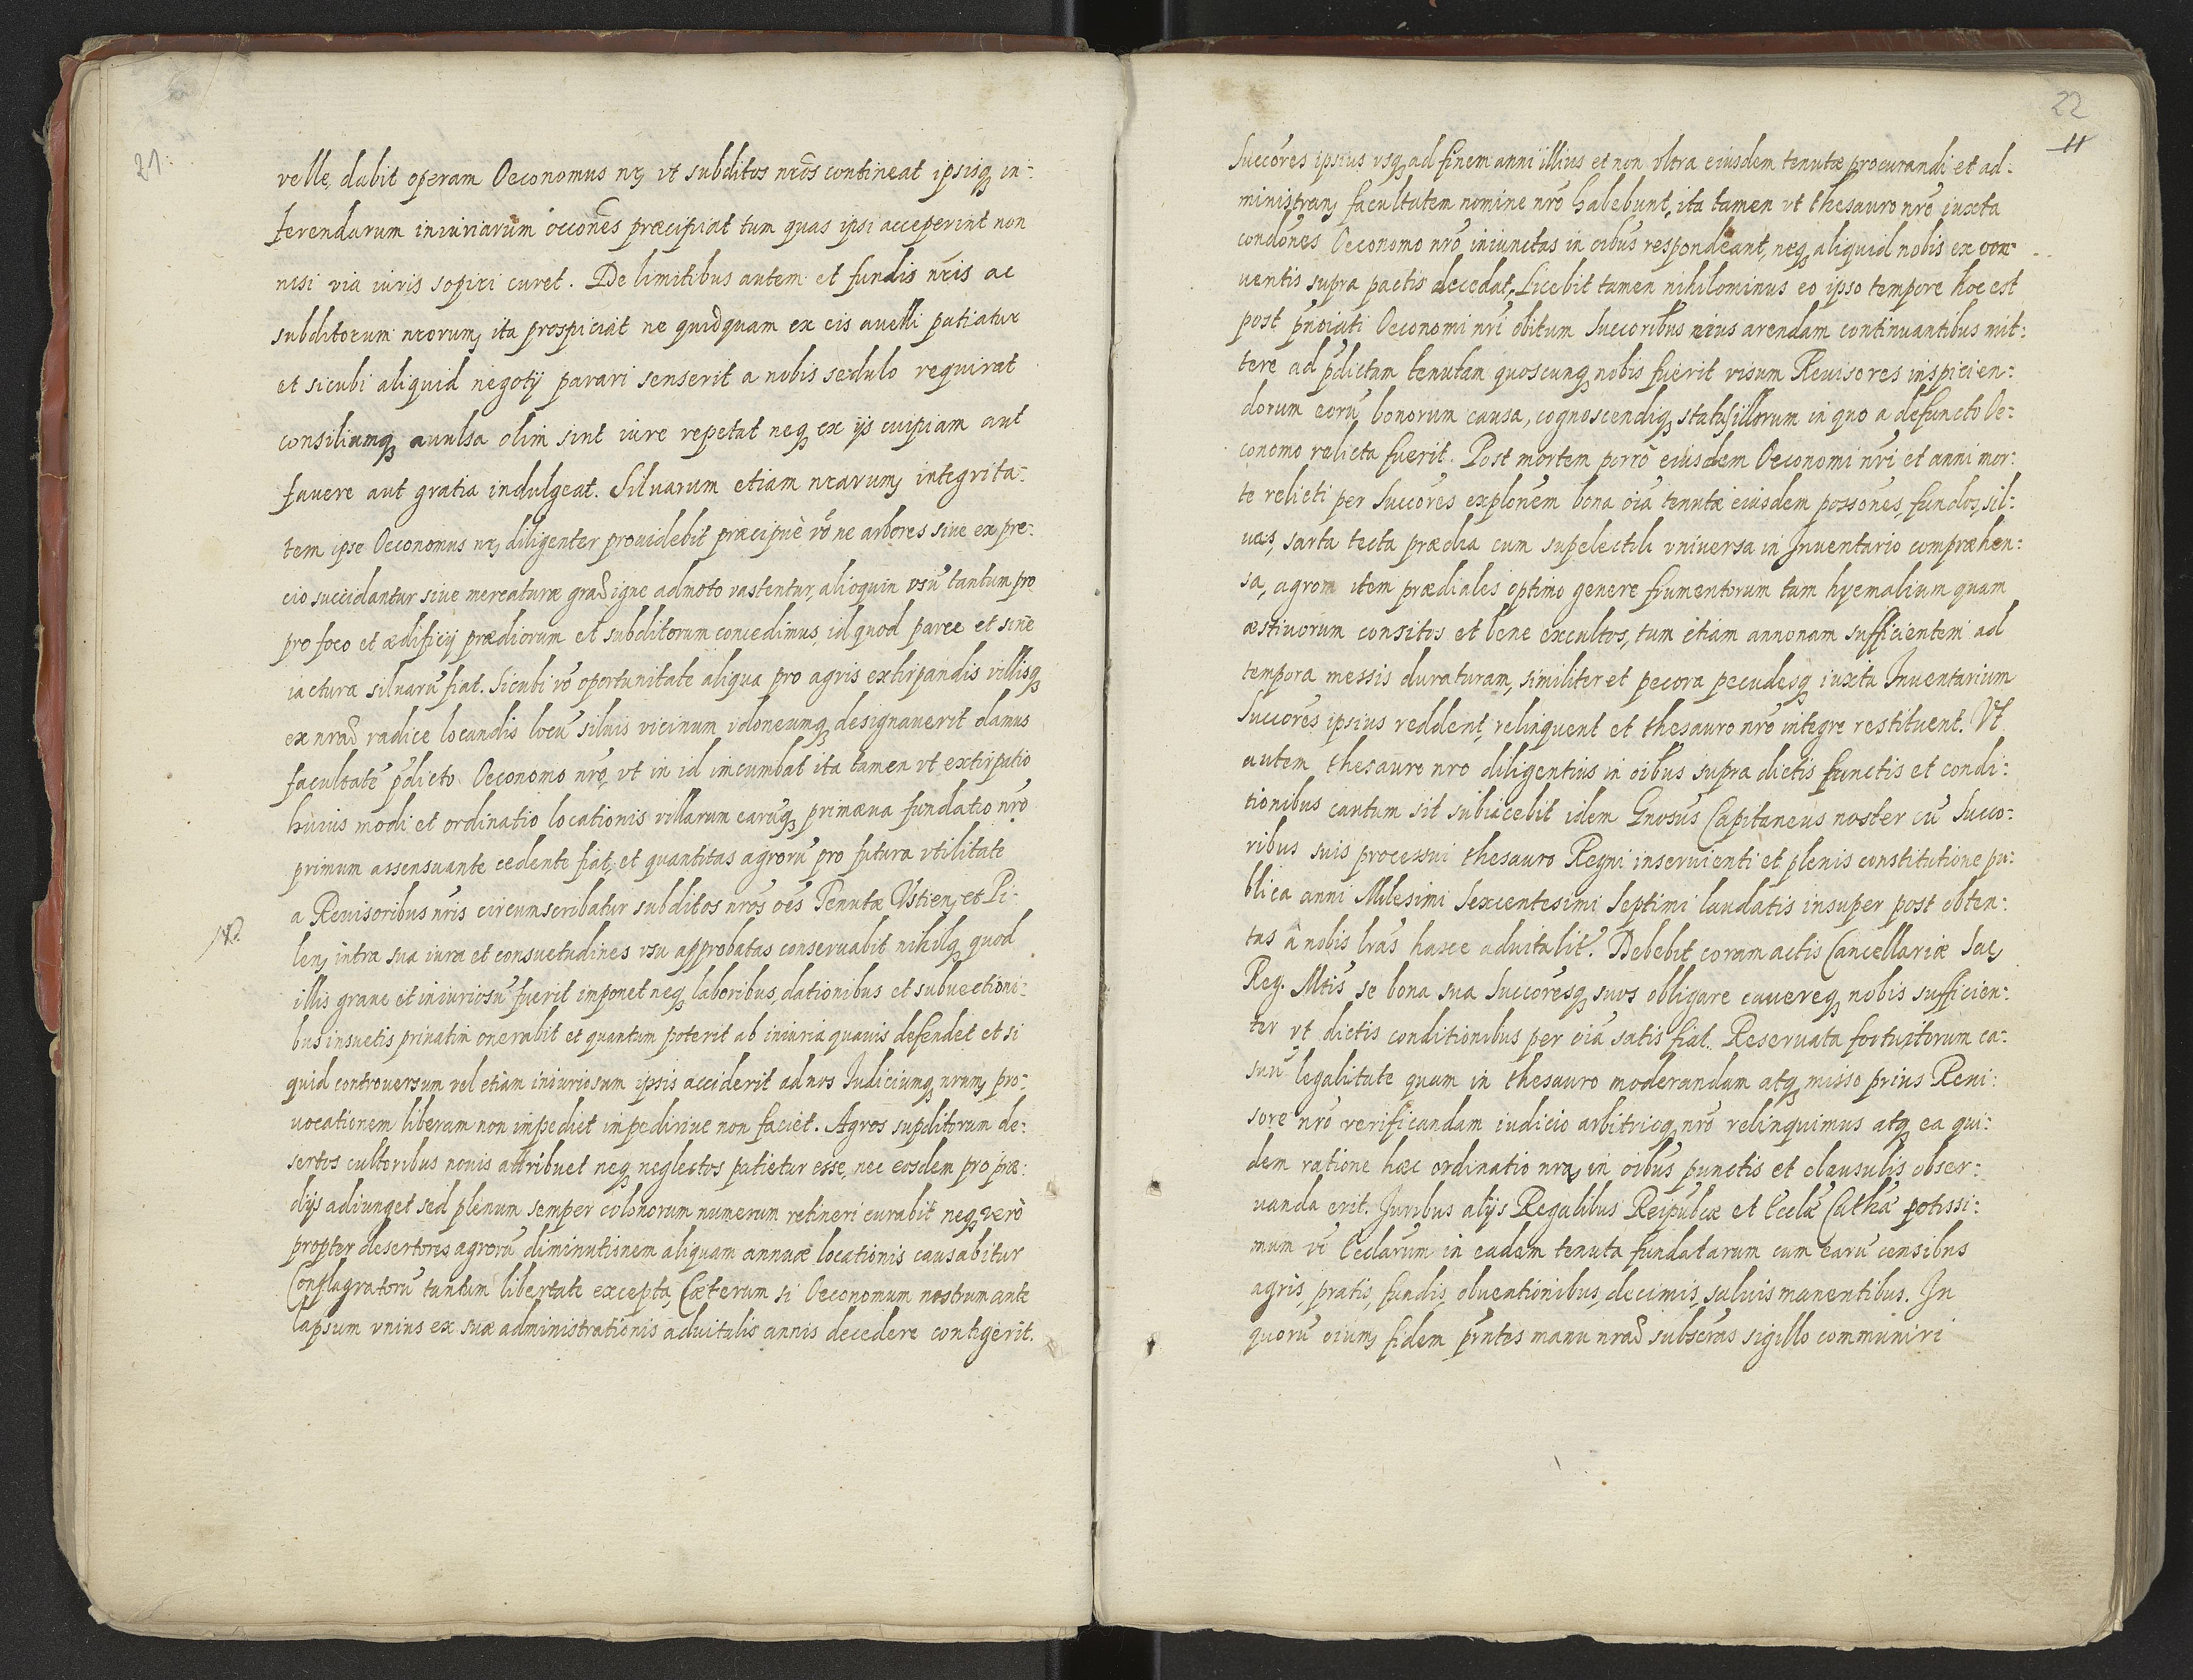 21.
velle, dabit operam Oeconomus nr, vt subditos nros contineat ipsisq in:
ferendarum iniuriarum occones præcipiat tum quas ipsi acceperint non
nisi via iuris sopiri curet. De limitibus autem et fundis nris ac
subditorum nrorum, ita prospiciat ne quidquam ex eis auelli patiatur
et sicubi aliquid negotÿ parari senserit a nobis sedulo requirat
consiliumq auulsa olim sint iure repetat neq ex ijs cuipiam aut
fauere aut gratia indulgeat. Siluarum etiam nrarum, integrita:
tem ipse Oeconomus nr, diligenter prouidebit præcipuè vō ne arbores siue ex pre:
cio succidantur siue mercaturæ grad igne admoto vastentur, alioquin vsū tantum pro
pro foco et ædificÿ prædiorum et subditorum concedimus, id quod parce et sine
iactura siluarū fiat. Sicubi vō oportunitate aliqua pro agris extirpandis villisq
ex nrad radice locandis locū siluis vicinum idoneumq designauerit damus
facultatē pdicto Oeconomo nrō, vt in id incumbat ita tamen vt extirpatio
huius modi et ordinatio locationis villarum earūq primæua fundatio nrō
primum assensu ante cedente fiat, et quantitas agrorū pro futura vtilitate
a Reuisoribus nris circumscribatur subditos nros oēs Tenutæ Vstien, et Pi:
NB.
len, intra sua iura et consuetudines vsu approbatas conseruabit nihilq quod
illis graue et iniuriosū fuerit imponet neq laboribus, dationibus et subuectioni:
bus insuetis priuatim onerabit et quantum poterit ab iniuria quauis defendet et si
quid controuersum vel etiam iniuriosum ipsis acciderit ad nos Iudiciumq nrum, pro:
uocationem liberam non impediet impediriue non faciet. Agros supditorum de:
sertos cultoribus nouis attribuet neq neglectos patietur esse, nec eosdem pro præ:
dijs adiunget sed plenum semper colonorum numerum retineri curabit neq verò
propter desertores agrorū diminutionem aliquam annuæ locationis causabitur
Conflagratorū tantum libertate excepta, Cæterum si Oeconomum nostrum ante
lapsum vnius ex suæ administrationis aduitalis annis decedere contigerit.
22
11
Succores ipsius vsq ad finem anni illius et non vltra eiusdem tenutæ procurandi et ad:
ministran, facultatem nomine nrō habebunt, ita tamen vt thesauro nrō iuxta
condones Oeconomo nrō iniunctas in oibus respondeant, neq aliquid nobis ex con:
uentis supra pactis decedat, Licebit tamen nihilominus eo ipso tempore hoc est
post pnoiati Oeconomi nri obitum Succoribus eius arendam continuantibus mit:
tere ad pdictam tenutam quoscunq nobis fuerit visum Reuisores inspicien:
dorum eorū bonorum causa, cognoscendiq status illorum in quo a defuncto Oe:
conomo relicta fuerit. Post mortem porrò eiusdem Oeconomi nri et anni mor:
te relicti per Succores explonem bona oia tenutæ eiusdem possones, fundos, sil:
uas, sarta tecta prædia cum supelectili vniuersa in Inuentario compræhen:
sa, agrom item prædiales optimo genere frumentorum tam hyemalium quam
æstiuorum consitos et bene excultos, tum etiam annonam sufficientem ad
tempora messis duraturam, similiter et pecora pecudesq iuxta Inuentarium
Succores ipsius reddent, relinquent et thesauro nrō integre restituent. Vt
autem thesauro nro diligentius in oibus supra dictis functis et condi:
tionibus cautum sit subiacebit idem Gnosus Capitaneus noster cū Succo:
ribus suis processui thesauro Regni inseruienti et plenis constitutione pu:
blica anni Milesimi Sexcentesimi Septimi laudatis insuper post obten:
tas à nobis lras hasce aduitalit. Debebit coram actis Cancellariæ Sac,
Reg. Mtis se bona sua Succoresq suos obligare cauereq nobis sufficien:
ter vt dictis conditionibus per oia satis fiat. Reseruata fortuitorum ca:
suū legalitate quam in thesauro moderandam atq misso prius Reui:
sore nrō verificandam iudicio arbitrioq nrō relinquimus atq ea qui:
dem ratione hæc ordinatio nra, in oibus punctis et clausulis obser:
uanda erit. Juribus alijs Regalibus Reipublcæ et Ecclæ Cathæ potissi:
mum vē Ecclarum in eadem tenuta fundatarum cum earū censibus
agris, pratis, fundis, obuentionibus, decimis, saluis manentibus. In
quorū oium, fidem prntes manu nrad subscras sigillo communiri